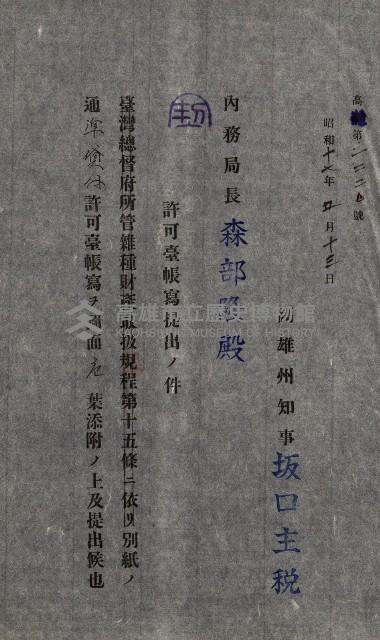 高 第 號
昭和十七年 五月十三日
高雄州知事 坂口主税
內務局長 森部隆殿
許可臺帳寫提出ノ件
臺灣總督府所管雜種財產取扱規程第十五條ニ依リ別紙ノ
通 貸付許可臺帳寫ヲ圖面 葉添附ノ上及提出候也
高雄市立歷史博物館
KAOHSIUNG MUSEUM OF HISTORY